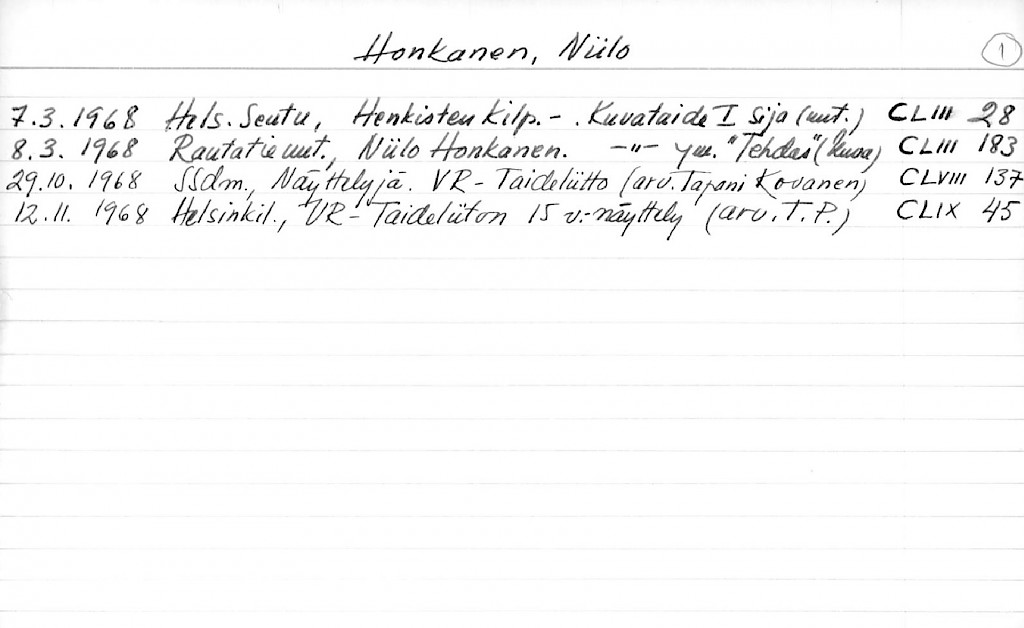 Honkanen, Niilo 1
7.3.1968 Hels. Seutu, Henkisten Kilp.-. Kuvataide I sija (uut.) CLIII 28
8.3. 1968 Rautatieuut., Niilo Honkanen. -"- ym. "Tehdas" (kuva) CLIII 183
29.10. 1968 SSdm., Näyttelyjä. VR-Taideliitto (arv. Tapani Kovanen) CLVIII 137
12.11. 1968 Helsinkil., VR-Taideliiton 15 v.-näyttely (arv. T.P.) CLIX 45